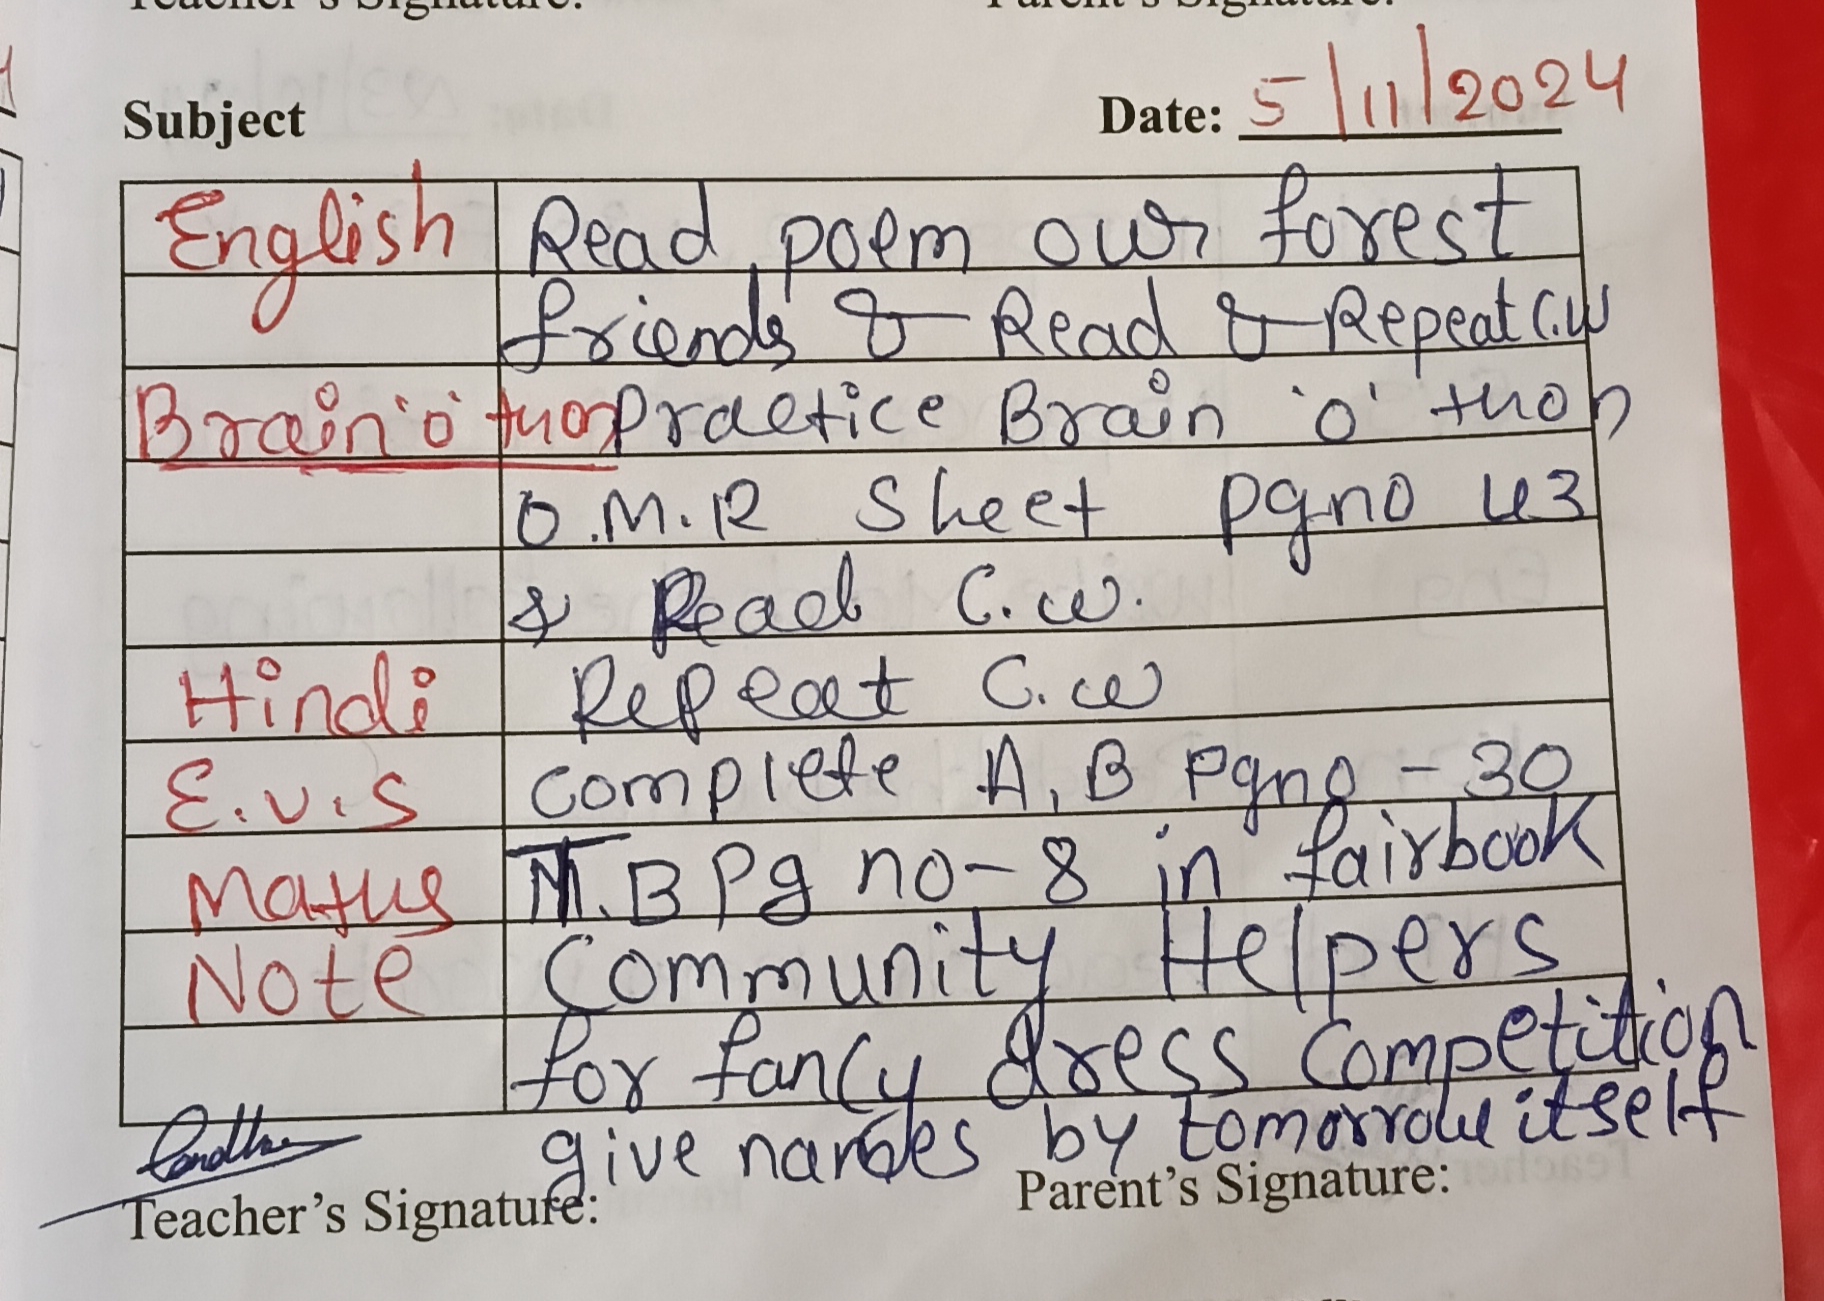 Teacher's Signature: Parent's Signature:
Subject Date: 5/11/2024
English Read poem our forest
friends & Read & Repeat C.W
Brain 'o' thon Practice Brain 'o' thon
O.M.R Sheet pgno 43
& Read C.w.
Hindi Repeat C.w
E.v.s complete A, B pgno - 30
Maths T.B Pg no - 8 in fairbook
Note Community Helpers
for fancy dress Competition
give names by tomorrow itself
Teacher's Signature: Parent's Signature: